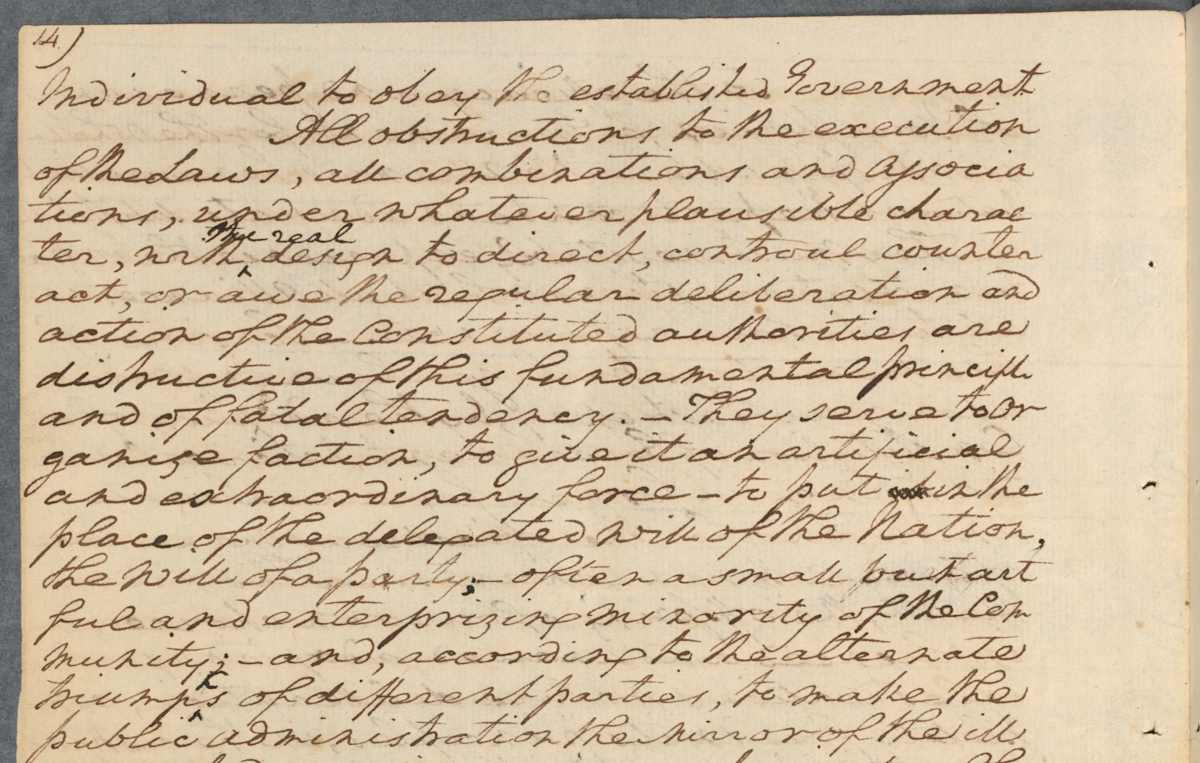 14)
Individual to obey the established Government
All obstructions to the execution
of the Laws, all combinations and associa
tions, under whatever plausible charac
the real
ter, with ^ design to direct, controul counter
act, or awe the regular deliberation and
action of the Constituted authorities are
distructive of this fundamental principle
and of fatal tendency. — They serve to or
ganize faction, to give it an artificial
and extraordinary force — to put in the
place of the delegated will of the Nation,
the will of a party; — often a small but art
ful and enterprizing minority of the Com
munity; — and, according to the alternate
triumphs of different parties, to make the
public administration the mirror of the ill